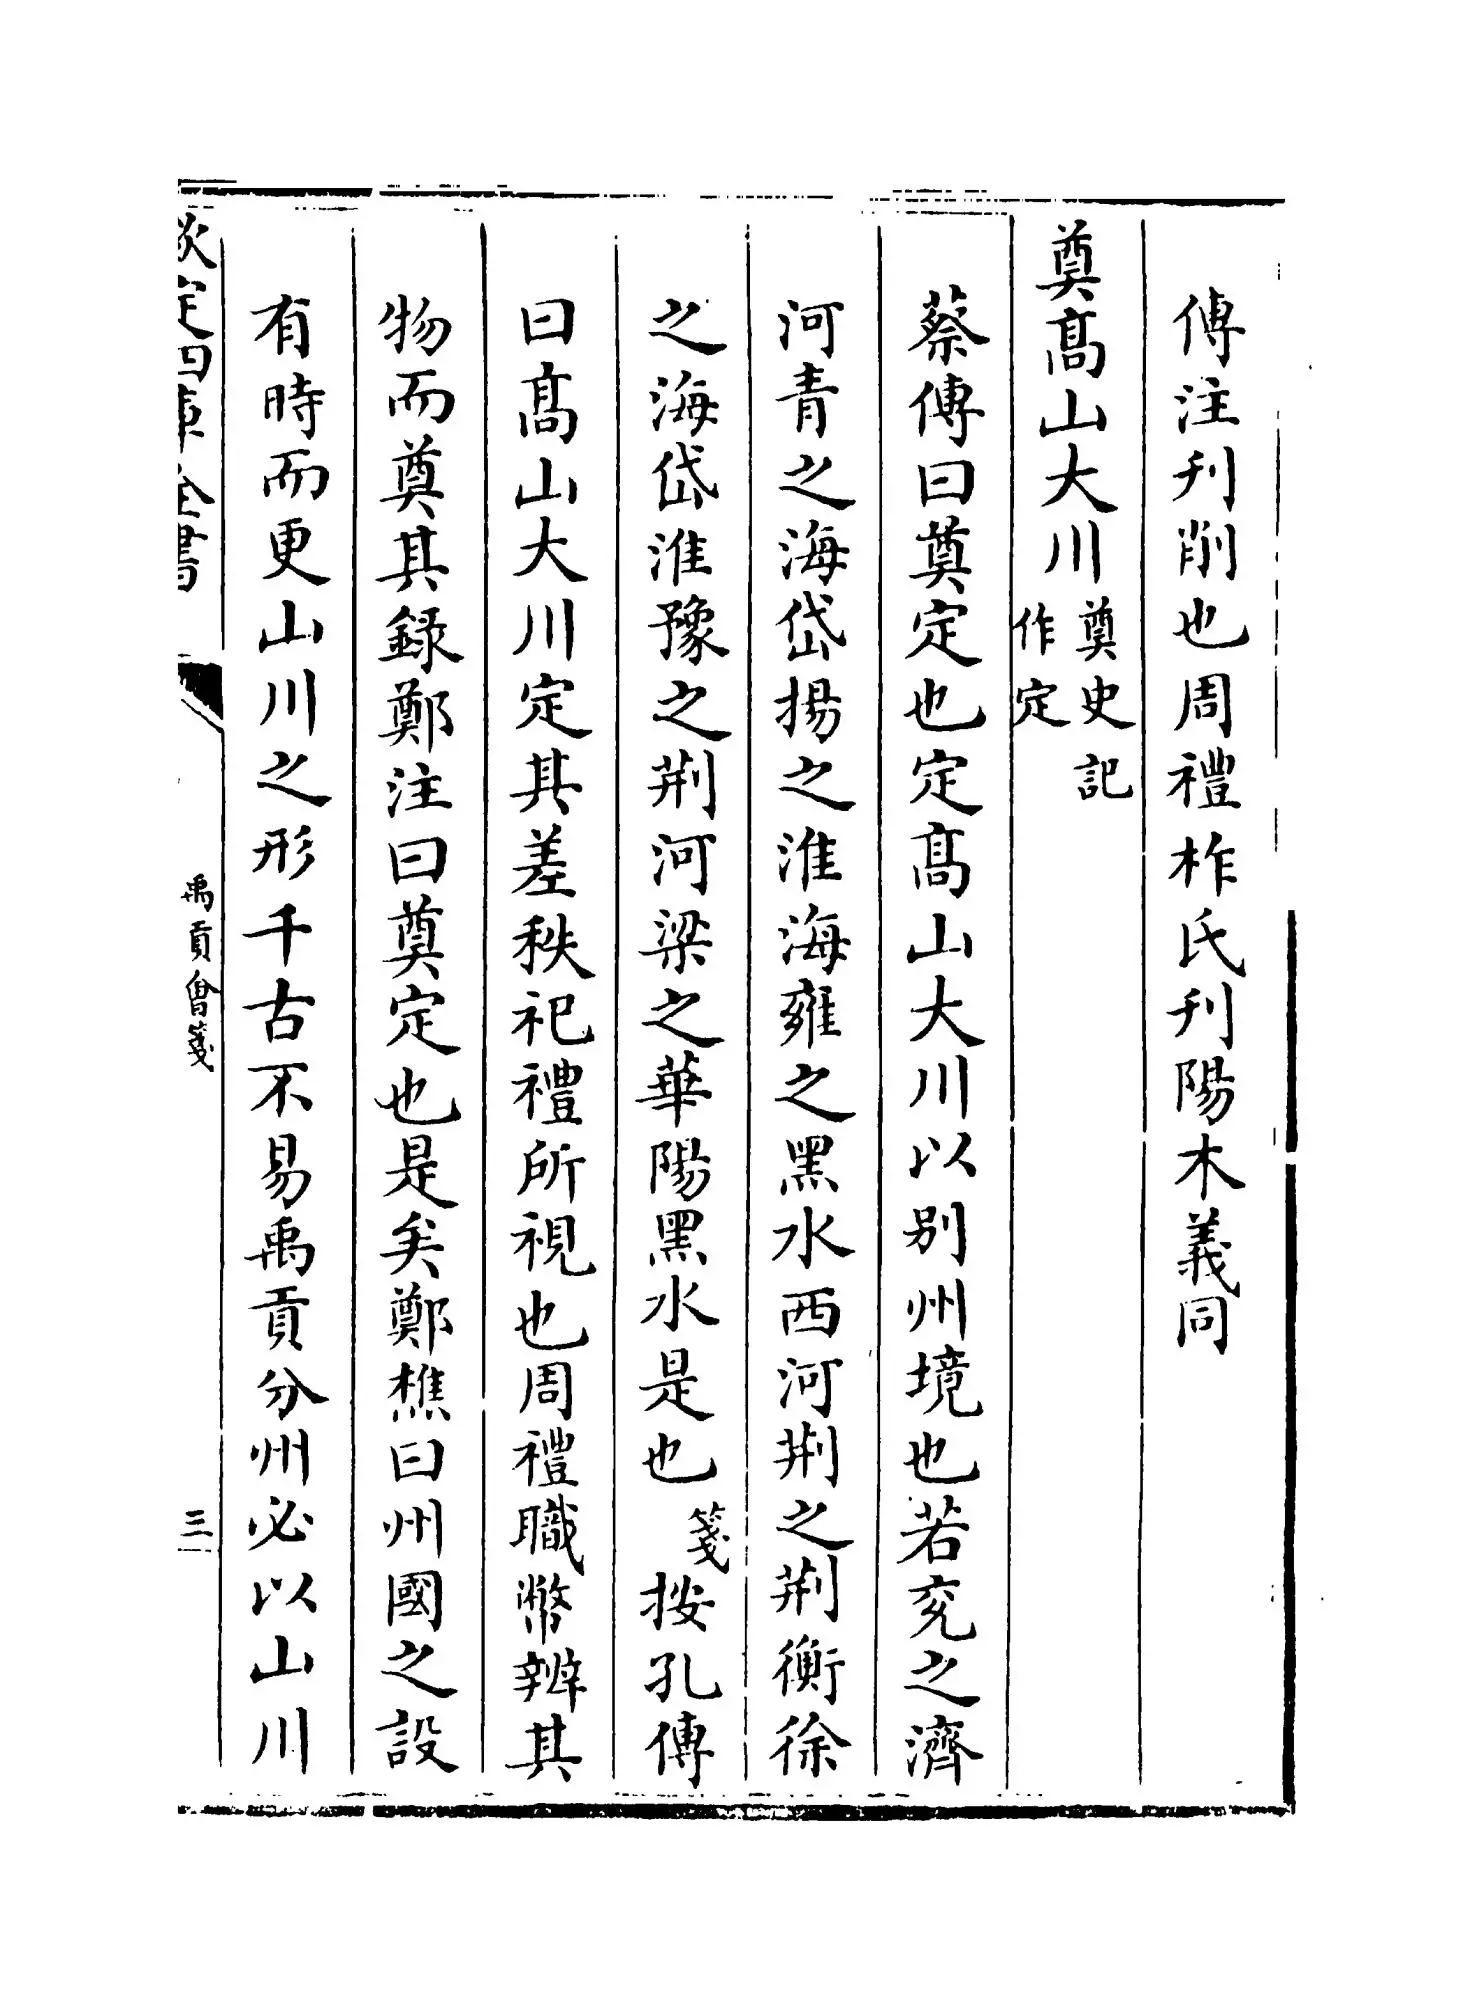 傳注刋削也周禮柞氏刋陽木義同
奠髙山大川奠史記作定
蔡傳曰奠定也定髙山大川以别州境也若兖之濟
河青之海岱揚之淮海雍之黑水西河荆之荆衡徐
之海岱淮豫之荆河梁之華陽黑水是也箋按孔傳
曰髙山大川定其差秩祀禮所視也周禮職幣辨其
物而奠其録鄭注曰奠定也是矣鄭樵曰州國之設
有時而更山川之形千古不易禹貢分州必以山川
欽定四庫全書
禹貢㑹箋
三